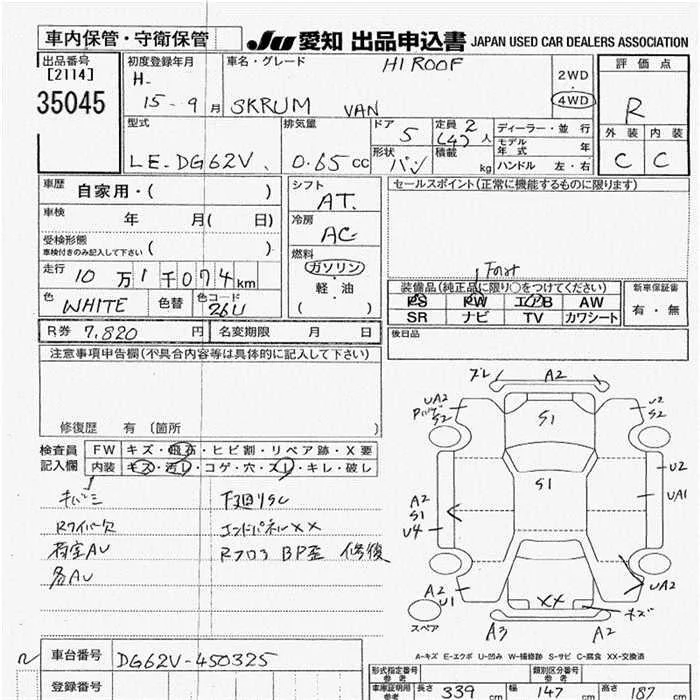 車内保管・守衛保管
JU 愛知 出品申込書 JAPAN USED CAR DEALERS ASSOCIATION
出品番号
[2114]
35045
初度登録年月
H-
15-9月
車名・グレード
HI ROOF
SKRUM VAN
2WD
4WD
評価点
R
外装 内装
C C
型式
LE-DG62V
排気量
0.65cc
ドア
5
定員 2
(4)人
形状
バン
積載
kg
ディーラー・並行
モデル年式 年
ハンドル 左・右
車歴 自家用・( )
車検 年 月( 日)
受検形態
車検付きのみ記入して下さい ( )
走行 10万1千074km
色 WHITE 色替 色コード 26U
シフト
AT.
冷房
AC
燃料
ガソリン
・
軽・油
( )
セールスポイント(正常に機能するものに限ります)
装備品(純正品に限り○をつけてください)
PS PW エアB AW
SR ナビ TV カワシート
新車保証書
有・無
R券 7,820円 名変期限 月 日
後日品
注意事項申告欄(不具合内容等は具体的に記入して下さい)
修復歴 有 (箇所 )
検査員
記入欄
FW キズ・飛石・ヒビ割・リペア跡・X要
内装 キズ・汚レ・コゲ・穴・スレ・キレ・破し
下廻りSC
Rワイパー欠
エンドパネルXX
荷室AU
Rフロア BP歪 修復
各AU
ズレ A2
UA2
S2
S1
U2
S2
S1
A2
S1
U4
U2
UA1
A2
U1
XX
UA2
キズ
A3 A2
スペア
A-キズ E-エクボ U-凹み W-補修跡 S-サビ C-腐食 XX-交換済
車台番号 DG62V-450325
登録番号
形式指定番号
参考
類別区分番号
参考
車庫証明用
参考
長さ 339cm 幅 147cm 高さ 187cm